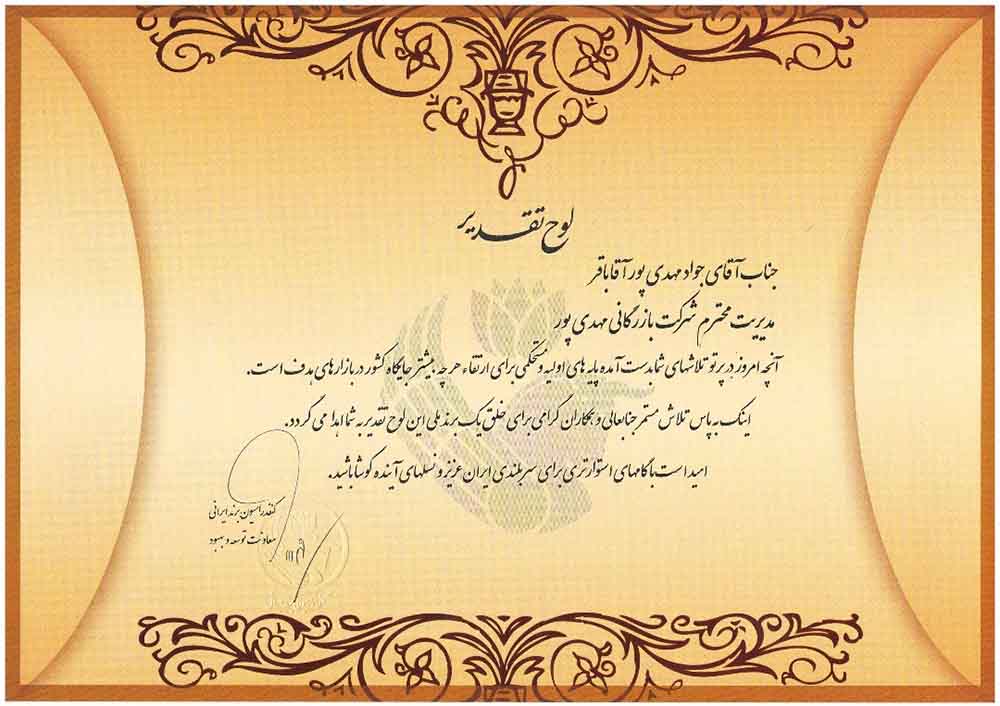 لوح تقدیر
جناب آقای جواد مهدی پور آقاباقر
مدیریت محترم شرکت بازرگانی مهدی پور
آنچه امروز در پرتو تلاشهای شما بدست آمده پایه های اولیه و مستحکمی برای ارتقاء هر چه بیشتر جایگاه کشور در بازارهای هدف است.
اینک به پاس تلاش مستمر جنابعالی و همکاران گرامی برای خلق یک برند ملی این لوح تقدیر به شما اهدا می گردد.
امید است با گامهای استوارتری برای سربلندی ایران عزیز و نسلهای آینده کوشا باشید.
کنفدراسیون برند ایرانی
معاونت توسعه و بهبود